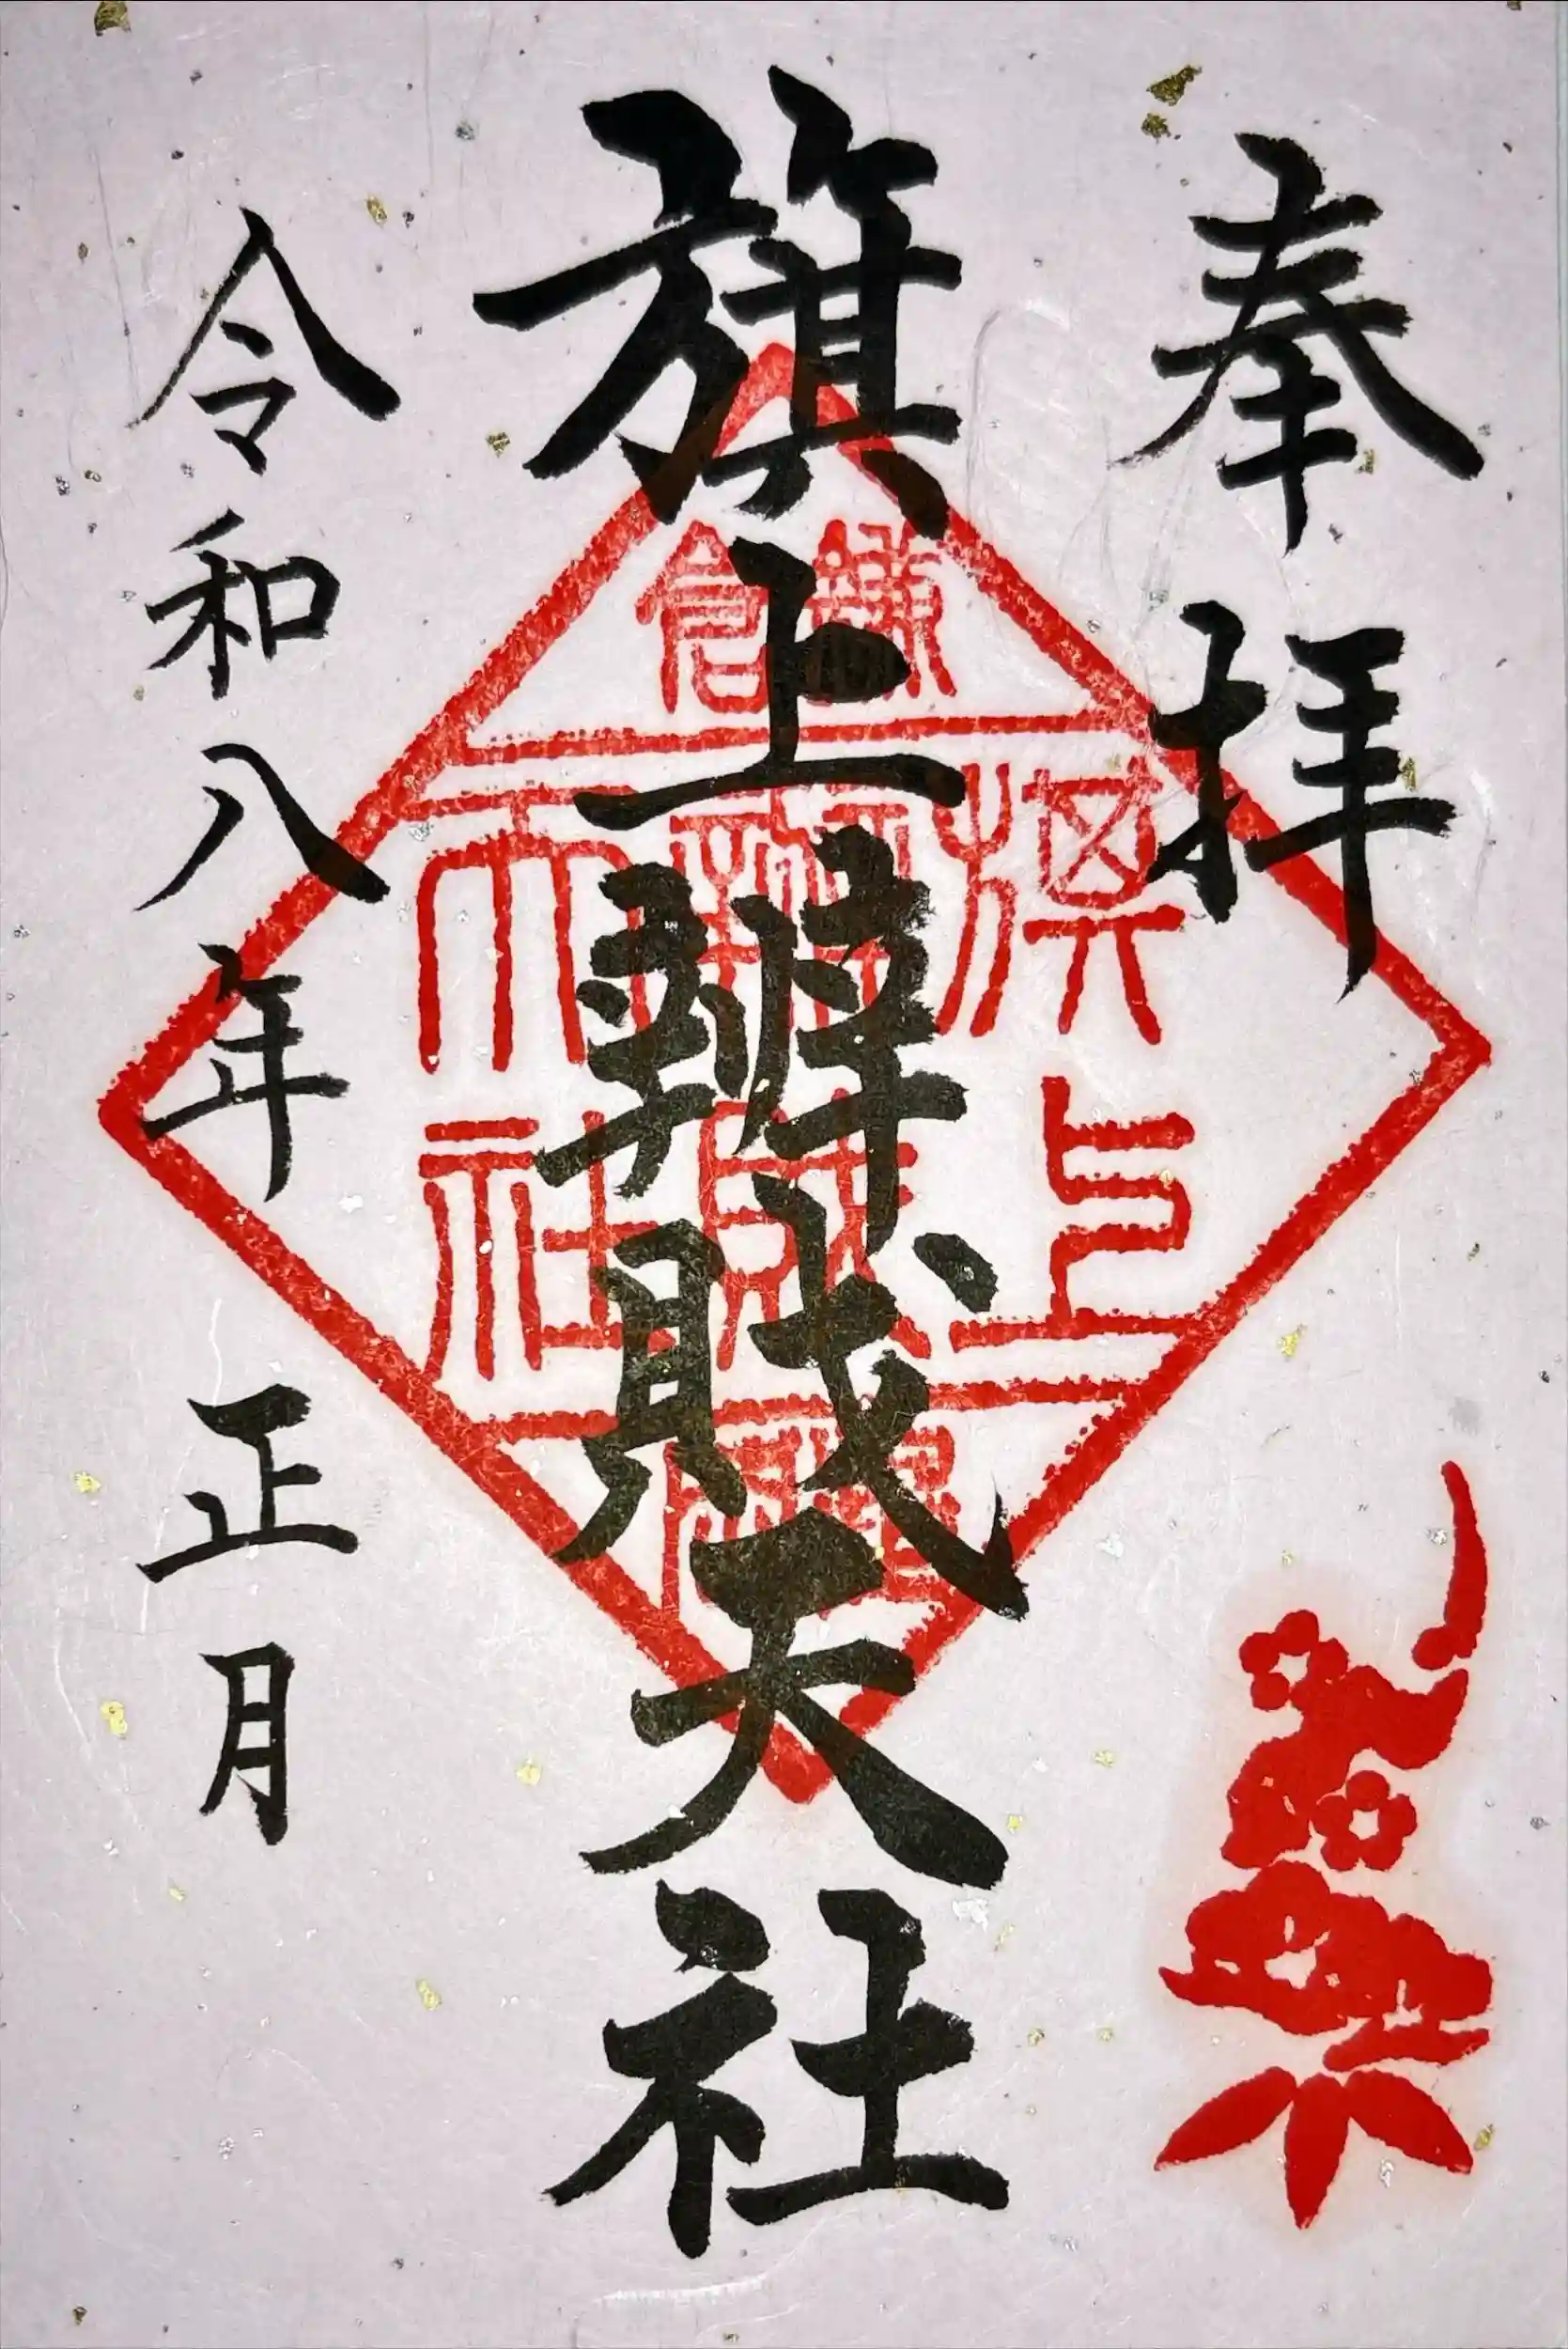 奉拝
旗上辨財天社
令和八年 正月
鎌倉
旗上
辨財天
社